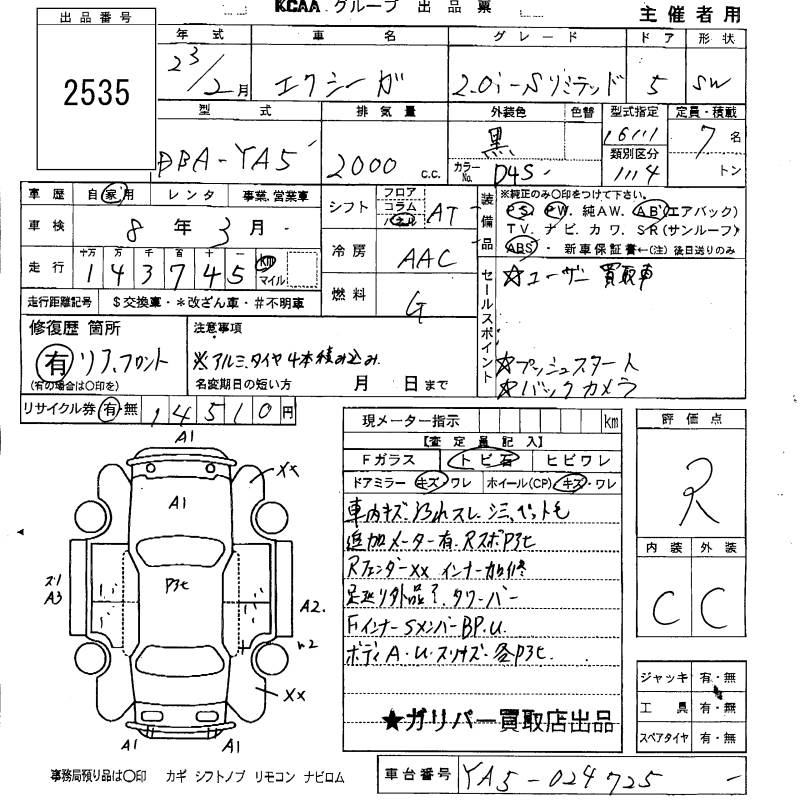 KCAA グループ 出品票
主催者用
出品番号
2535
年式
23/2月
車名
エクシーガ
グレード
2.0i-Sリミテッド
ドア
5
形状
SW
型式
DBA-YA5
排気量
2000 c.c.
外装色
黒
色替
カラーNo.
D4S
型式指定
16111
類別区分
1114
定員・積載
7名
トン
車歴 自家用 レンタ 事業.営業車
車検 8年3月
走行 十万 万 千 百 十 一
143745 km マイル
走行距離記号 $交換車・*改ざん車・#不明車
シフト フロア コラム パネル AT
冷房 AAC
燃料 G
装備品
※純正のみ○印をつけて下さい。
PS. PW. 純AW. AB(エアバック)
TV. ナビ. カワ. SR(サンルーフ)
ABS・新車保証書←(注)後日送りのみ
セールスポイント
☆ユーザー買取車
☆プッシュスタート
☆バックカメラ
修復歴 箇所
有 リア、フロント
(有の場合は○印を)
注意事項
※アルミ.タイヤ4本積み込み
名変期日の短い方 月 日まで
リサイクル券 有・無 14510円
現メーター指示 km
【査定員記入】
Fガラス トビ石 ヒビワレ
ドアミラー キズ・ワレ ホイール(CP) キズ・ワレ
車内キズ 汚れスレ シミ、ペット毛
追加メーター有. RスポP3セ
Rフェンダーxx インナー加修
足廻り外品?. タワーバー
Fインナー SメンバーBP.U.
ボディA・U・スリキズ・各P3セ.
★ガリバー買取店出品
評価点
R
内装 外装
C C
ジャッキ 有・無
工具 有・無
スペアタイヤ 有・無
A1
xx
A1
P3セ
A3
A2.
xx
A1 A1
事務局預り品は○印 カギ シフトノブ リモコン ナビロム
車台番号 YA5-024725